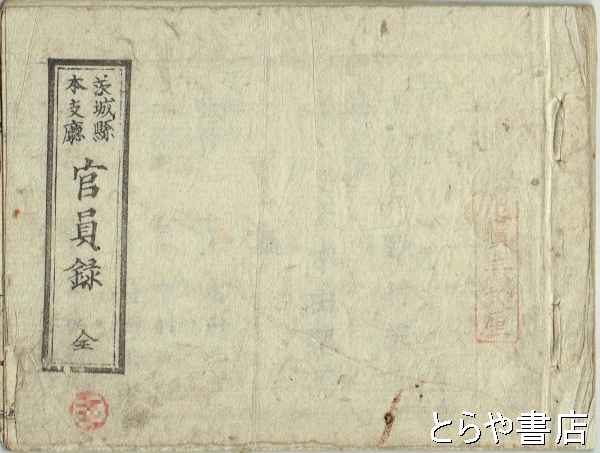 茨城縣
本支廳
官員録 全
とらや書店